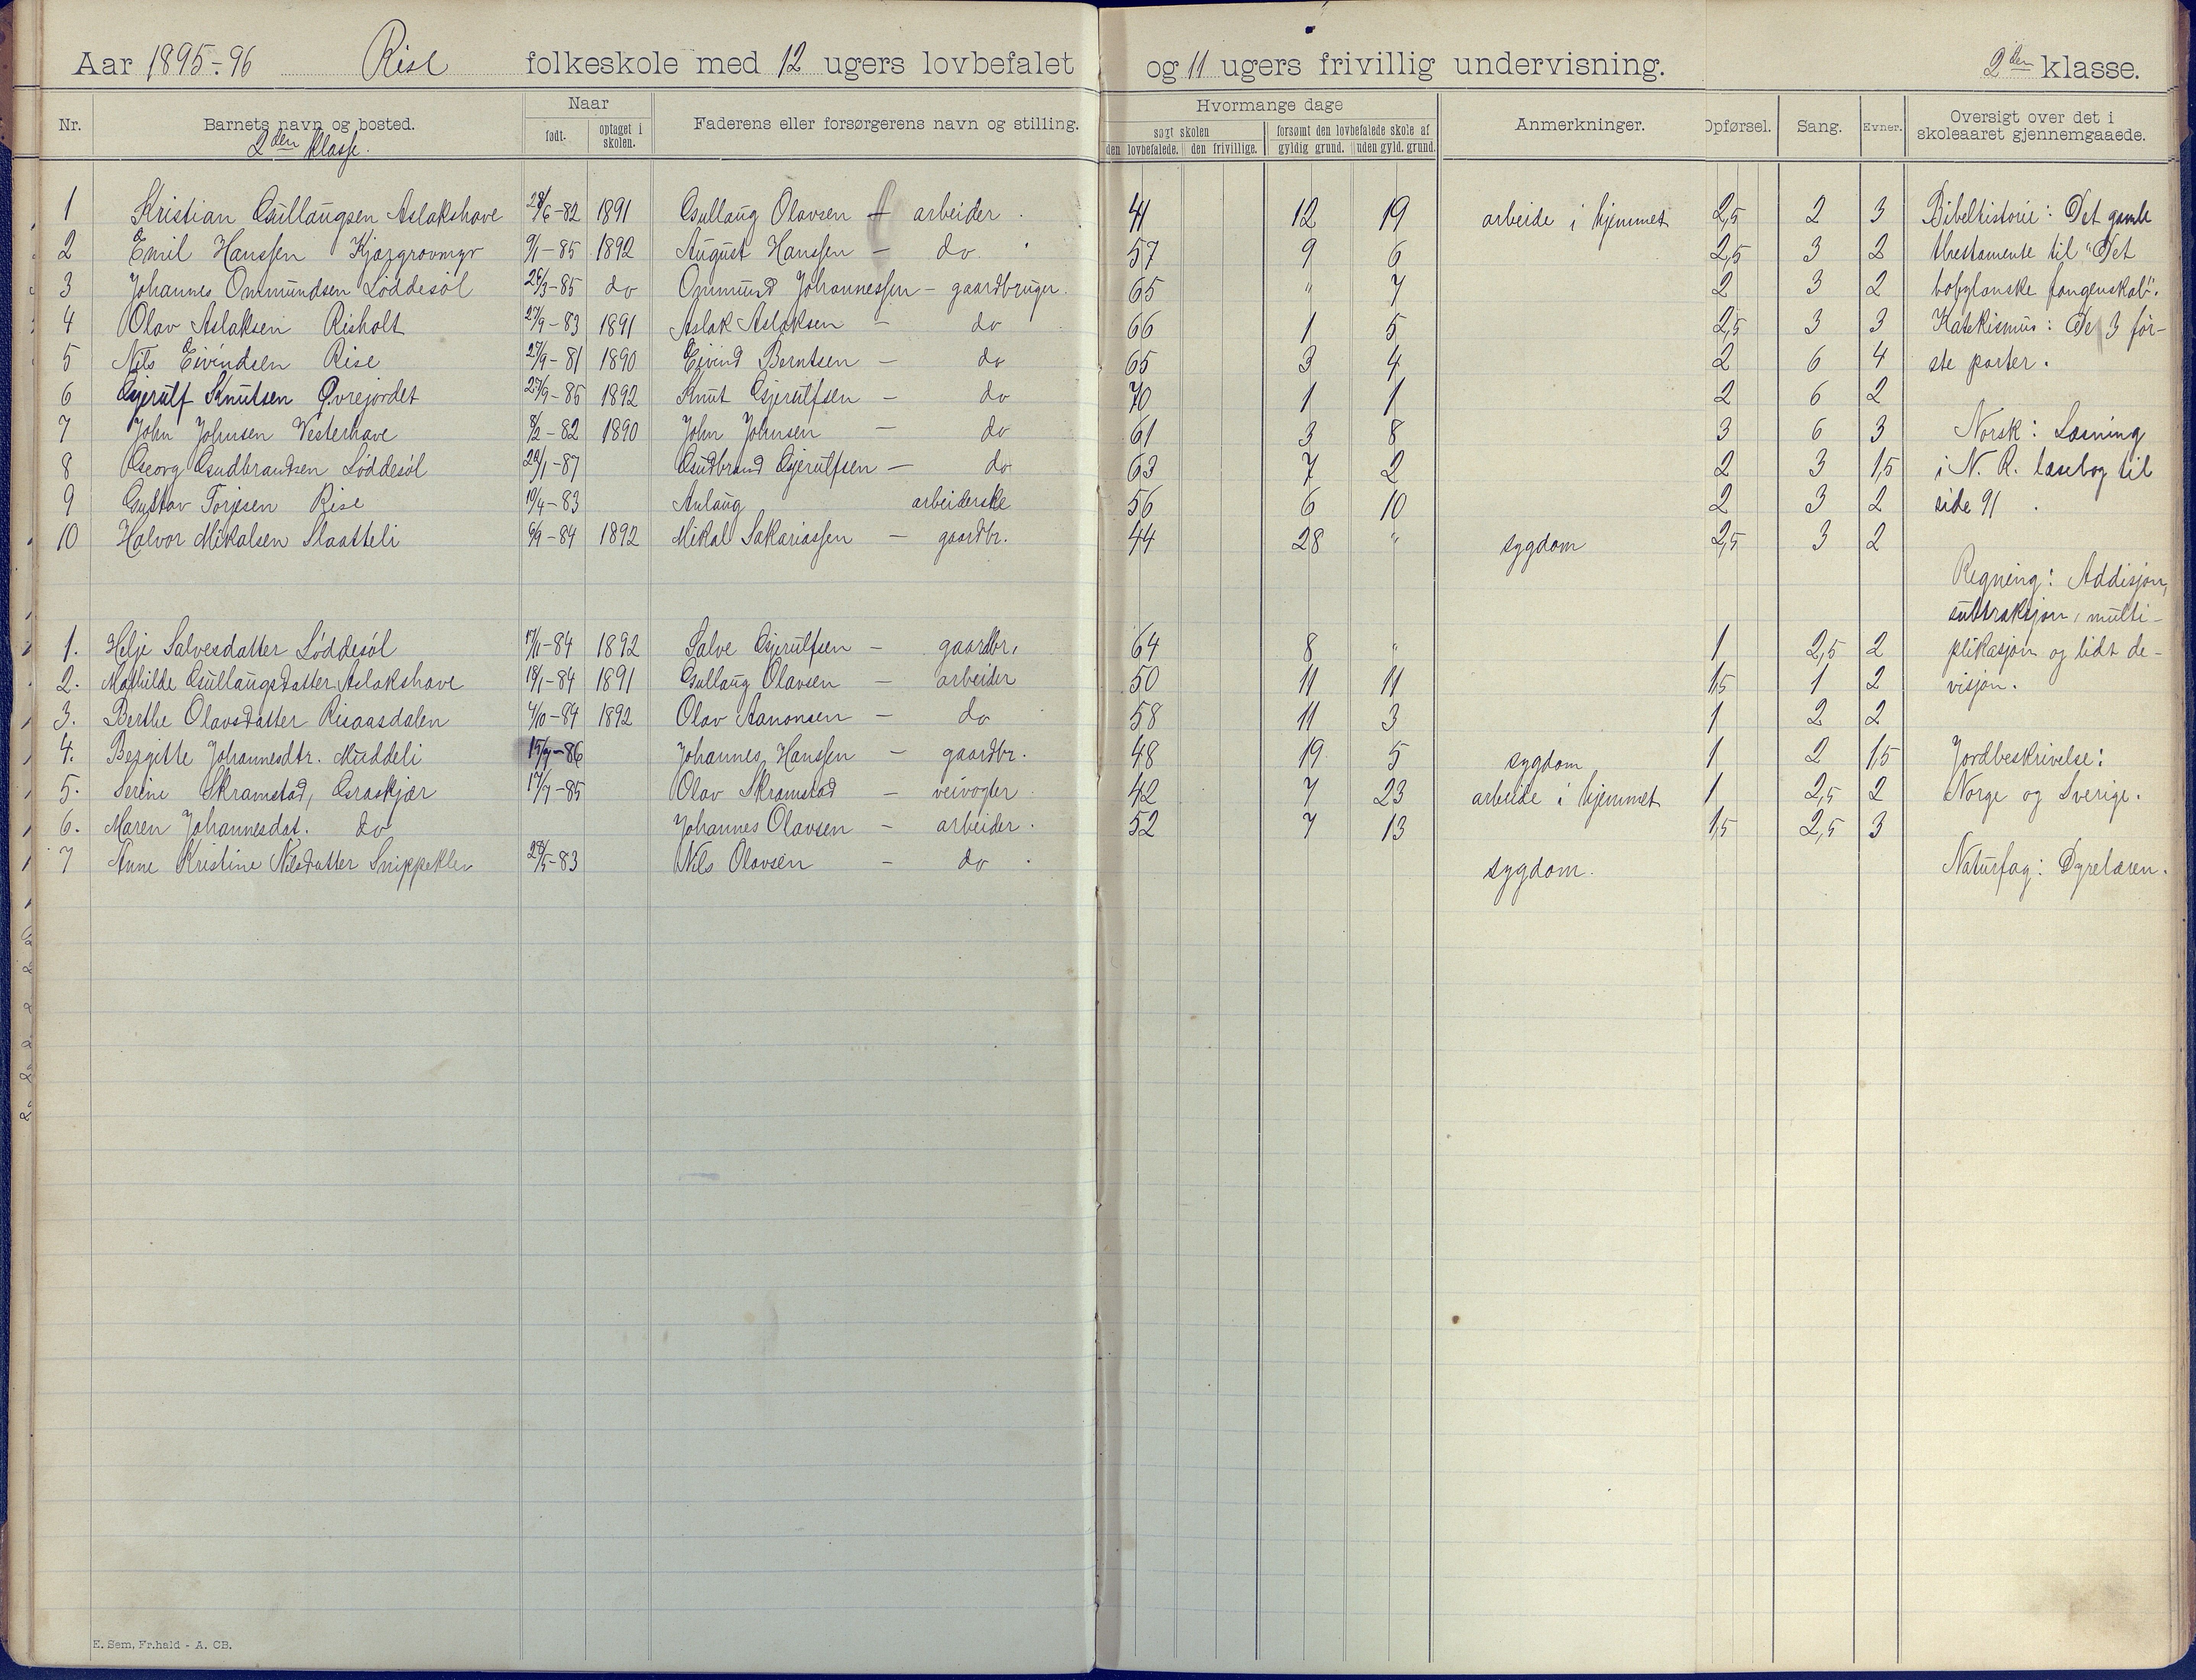 Aar 1895-96 Rise folkeskole med 12 ugers lovbefalet og 11 ugers frivillig undervisning. 2den klasse.
Nr. Barnets navn og bosted. Naar født. optaget i skolen. Faderens eller forsørgerens navn og stilling. Hvormange dage søgt skolen den lovbefalede. den frivillige. forsømt den lovbefalede skole af gyldig grund. uden gyld. grund. Anmerkninger. Opførsel. Sang. Evner. Oversigt over det i skoleaaret gjennemgaaede.
2den klasse.
1 Kristian Gullaugsen Aslakshave 28/6-82 1891 Gullaug Olavsen - arbeider. 41 12 19 arbeide i hjemmet 2,5 2 3 Bibelhistorie: Det gamle
2 Emil Hanssen Kjærgrovmyr 9/1-85 1892 August Hanssen - do. 57 9 6 2,5 3 2 testamente til "Det
3 Johannes Ommundsen Løddesøl 26/3-85 do Ommund Johannessen - gaardbruger. 65 " 7 2 3 2 babylonske fangenskab".
4 Olav Aslaksen Risholt 27/9-83 1891 Aslak Aslaksen - do 66 1 5 2,5 3 3 Katekismus: De 3 før-
5 Nils Eivindsen Rise 27/9-81 1890 Eivind Berntsen - do 65 3 4 2 6 4 ste parter.
6 Gjerulf Knutsen Øvrejordet 27/9-85 1892 Knut Gjerulfsen - do 70 1 1 2 6 2
7 John Johnsen Vesterhave 8/2-82 1890 John Johnsen - do 61 3 8 3 6 3 Norsk: Læsning
8 Georg Gudbrandsen Løddesøl 22/1-87 Gudbrand Gjerulfsen - do 63 7 2 2 3 1,5 i N. R. læsebog til
9 Gustav Torjesen Rise 10/4-83 Anlaug arbeiderske 56 6 10 2 3 2 side 91.
10 Halvor Mikalsen Slaatteli 6/9-84 1892 Mikal Sakariassen - gaardbr. 44 28 " sygdom 2,5 3 2
Regning: Addisjon,
subtraksjon, multi-
1. Helje Salvesdatter Løddesøl 17/11-84 1892 Salve Gjerulfsen - gaardbr. 64 8 " 1 2,5 2 plikasjon og lidt de-
2. Mathilde Gullaugsdatter Aslakshave 18/1-84 1891 Gullaug Olavsen - arbeider 50 11 11 1,5 1 2 visjon.
3. Berthe Olavsdatter Risaasdalen 4/10-84 1892 Olav Aanonsen - do 58 11 3 1 2 2
4. Bergitte Johannesdtr. Muddeli 15/7-86 Johannes Hanssen - gaardbr. 48 19 5 sygdom 1 2 1,5 Jordbeskrivelse:
5. Serine Skramstad, Graskjær 17/7-85 Olav Skramstad - veivogter 42 7 23 arbeide i hjemmet 1 2,5 2 Norge og Sverige.
6. Maren Johannesdat. do Johannes Olavsen - arbeider. 52 7 13 1,5 2,5 3
7 Anne Kristine Nilsdatter Snippeklev 28/5-83 Nils Olavsen - do. sygdom. Naturfag: Dyrelæren.
E. Sem, Fr.hald - A. CB.